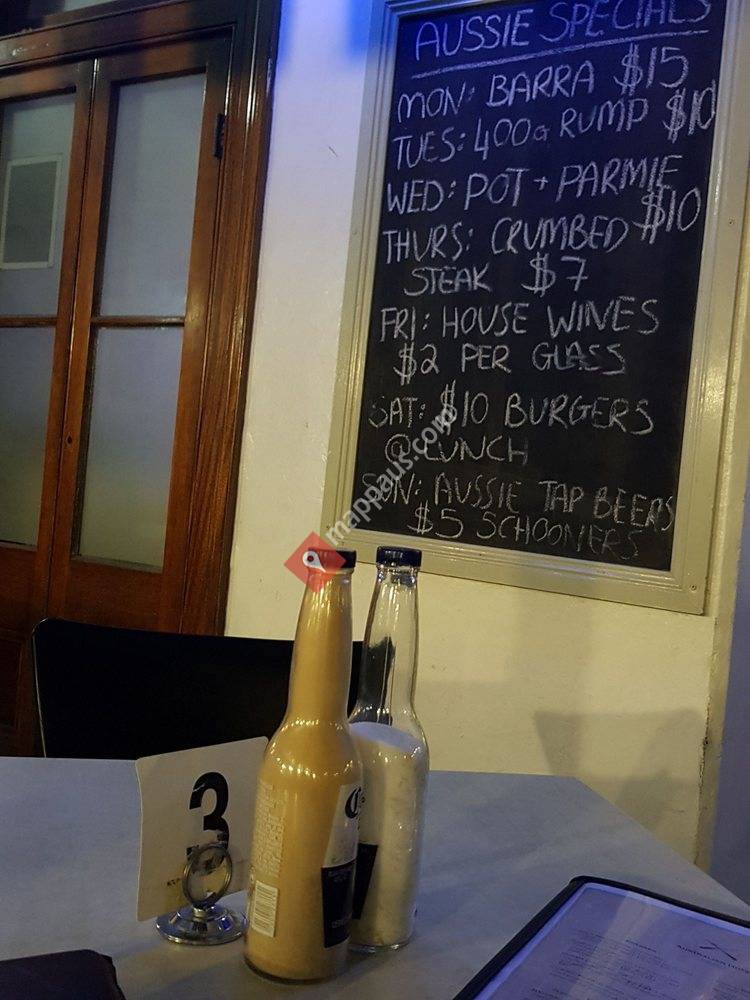 AUSSIE SPECIALS
MON: BARRA $15
TUES: 400g RUMP $10
WED: POT + PARMIE
$10
THURS: CRUMBED
STEAK $7
FRI: HOUSE WINES
$2 PER GLASS
SAT: $10 BURGERS
@ LUNCH
SUN: AUSSIE TAP BEERS
$5 SCHOONERS
mappaus.com
3